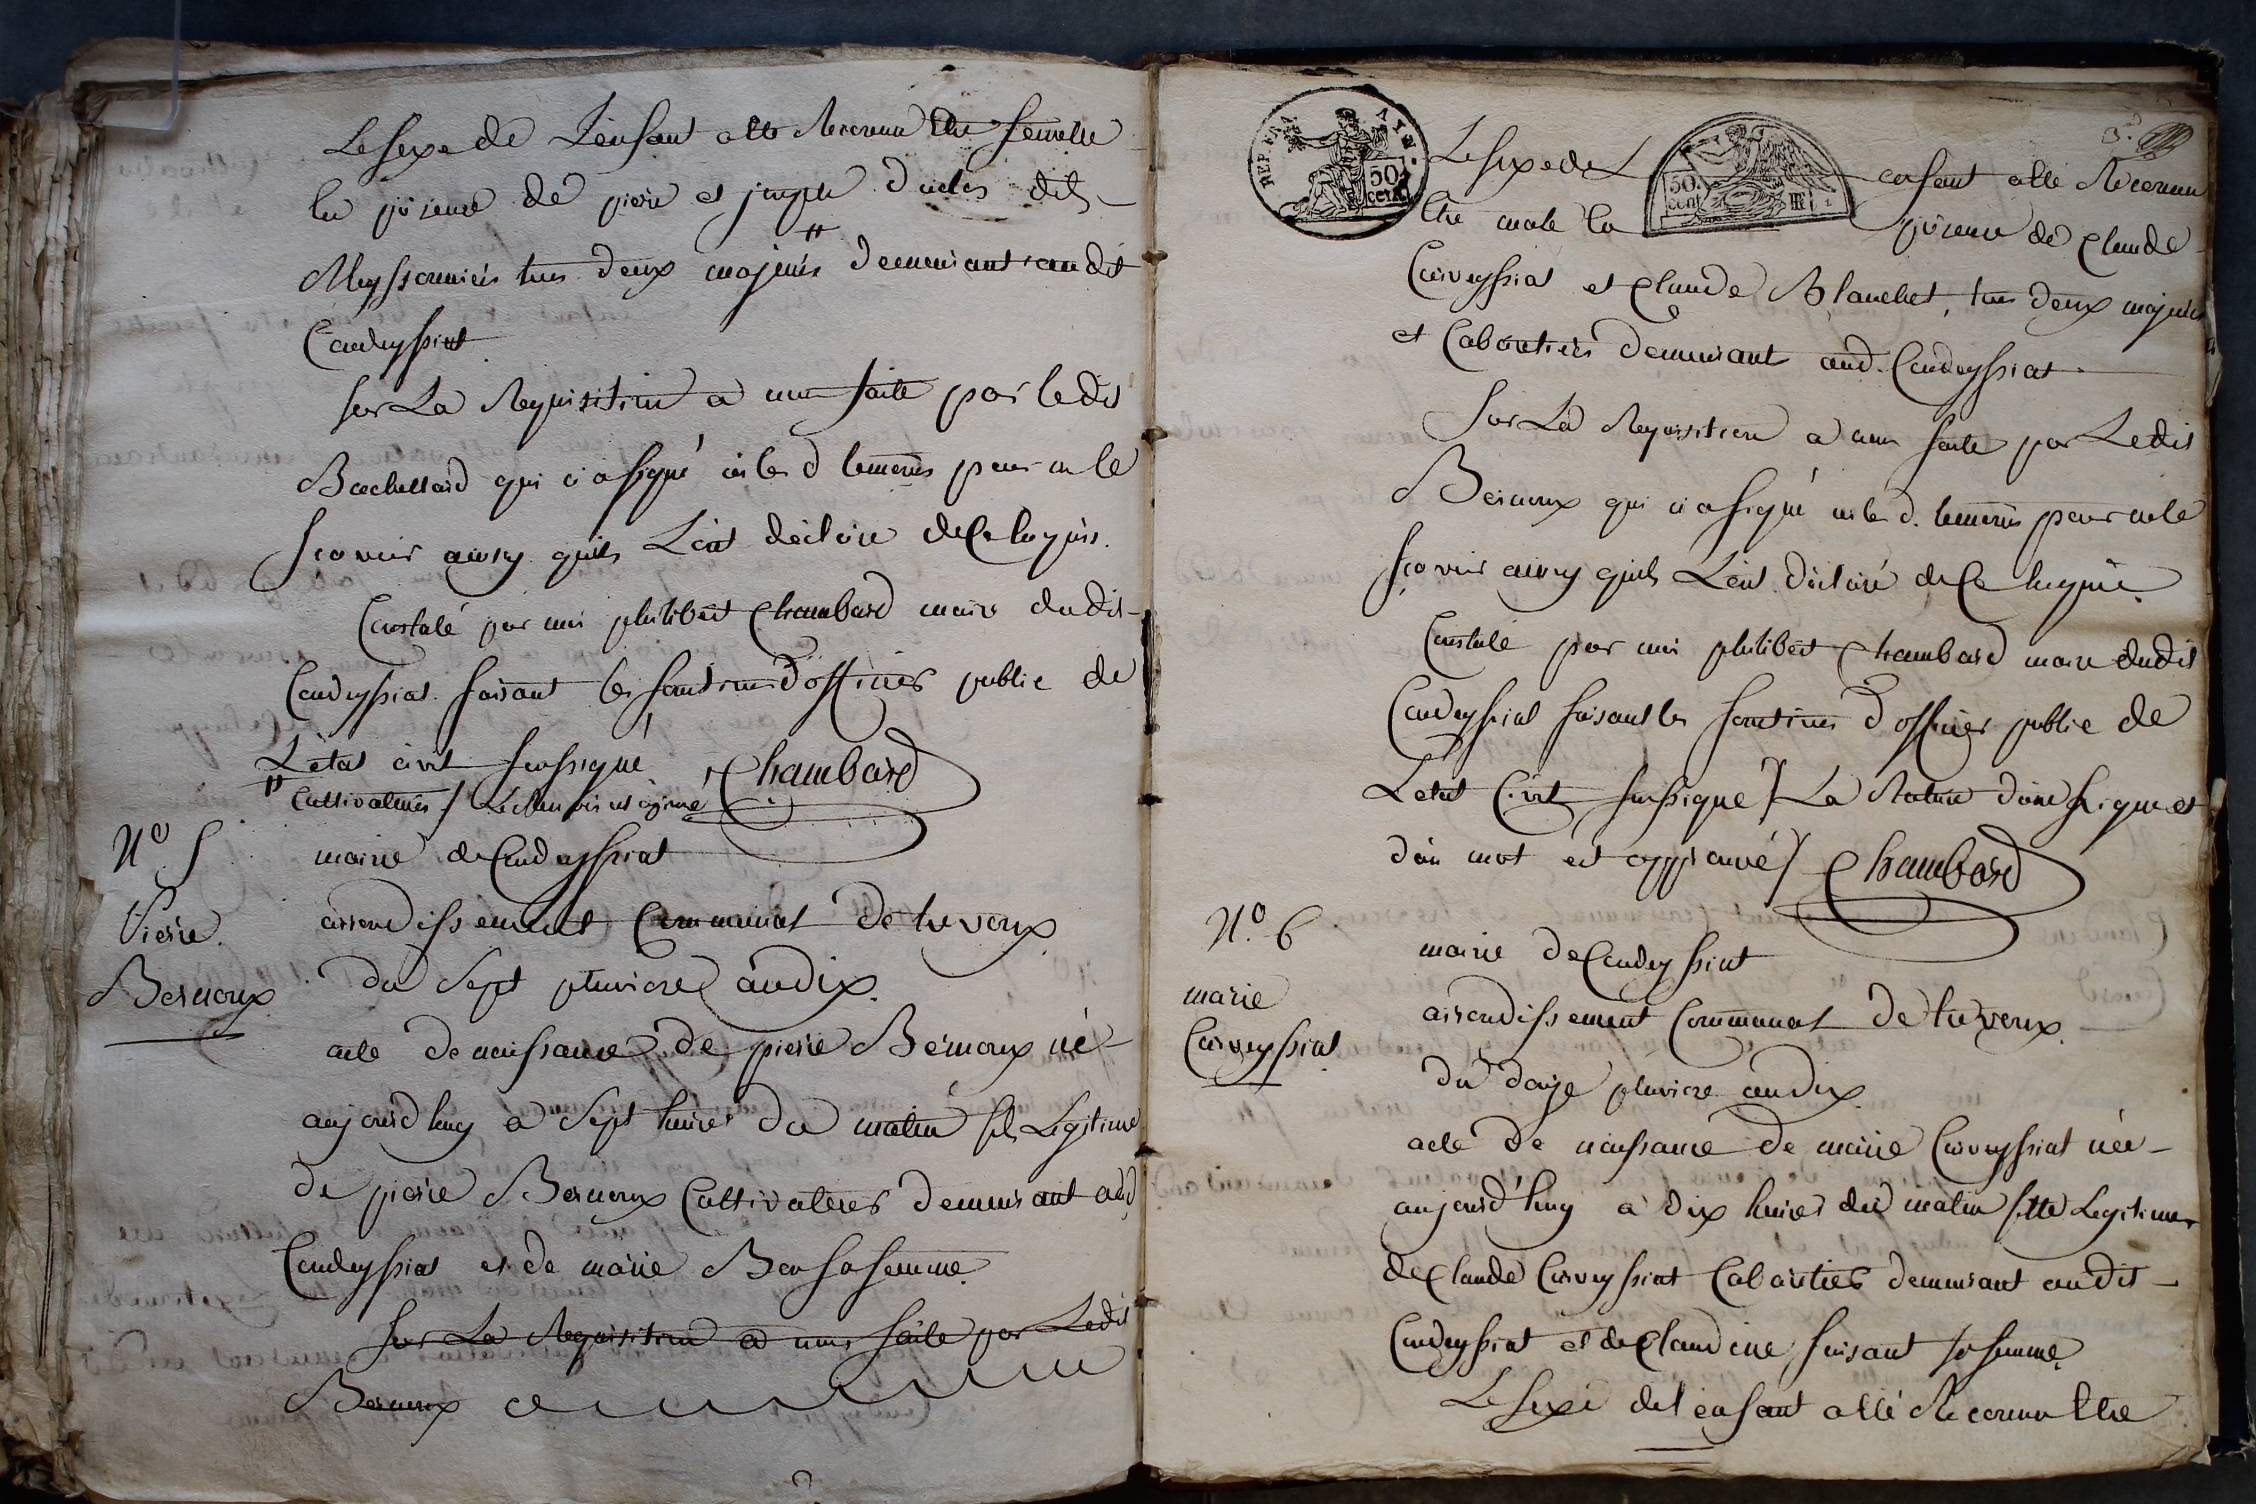 Le sexe de L'enfant a été Reconnu Etre femelle
En présence de pierre et joseph
Meyssonnier tous deux majeurs " demeurant audit
Condeyssiat
Sur La Requisition a nous faite par ledit
Bachellard qui a signé les d temoins pour ne le
scavoir ainsy quils L'ont déclaré de Ce Enquis.
Constaté par moi philibert Chambard maire dudit
Condeyssiat faisant les fonctions d'officier public de
L'etat civil soussigné. Chambard
" Cultivateurs / Le Renvois est aprouvé
N° 5
Pierre
Bernoux
mairie de Condeyssiat
arrondissement Communal de trevoux
du sept pluviose an dix.
acte de naissance de pierre Bernoux né
aujourd'huy a sept heures du matin fils Legitime
de pierre Bernoux Cultivateur demeurant aud
Condeyssiat et de marie sa femme.
Sur La Requisition a nous faite par Ledit
Bernoux
REP. FRA. 50. cent.
50. cent
Le sexe de L enfant a été Reconnu
Etre male En présence de Claude
Corveyssiat et Claude Blanchet, tous deux majeurs
et Cabaretiers demeurant aud. Condeyssiat.
Sur La Requisition a nous faite par Ledit
Bernoux qui a signé les d. temoins pour ne le
scavoir ainsy quils L'ont déclaré de Ce Enquis.
Constaté par moi philibert Chambard maire dudit
Condeyssiat faisant les fonctions d'officier public de
L'etat Civil soussigné / La Rature d'une ligne et
d'un mot est approuvé / Chambard
N° 6
marie
Corveyssiat
mairie de Condeyssiat
arrondissement Communal de trevoux.
du douze pluviose an dix.
acte de naissance de marie Corveyssiat née
aujourd'huy a dix heures du matin fille Legitime
de Claude Corveyssiat Cabaretier demeurant audit
Condeyssiat et de Claudine sa femme.
Le sexe de l'enfant a été Reconnu Etre